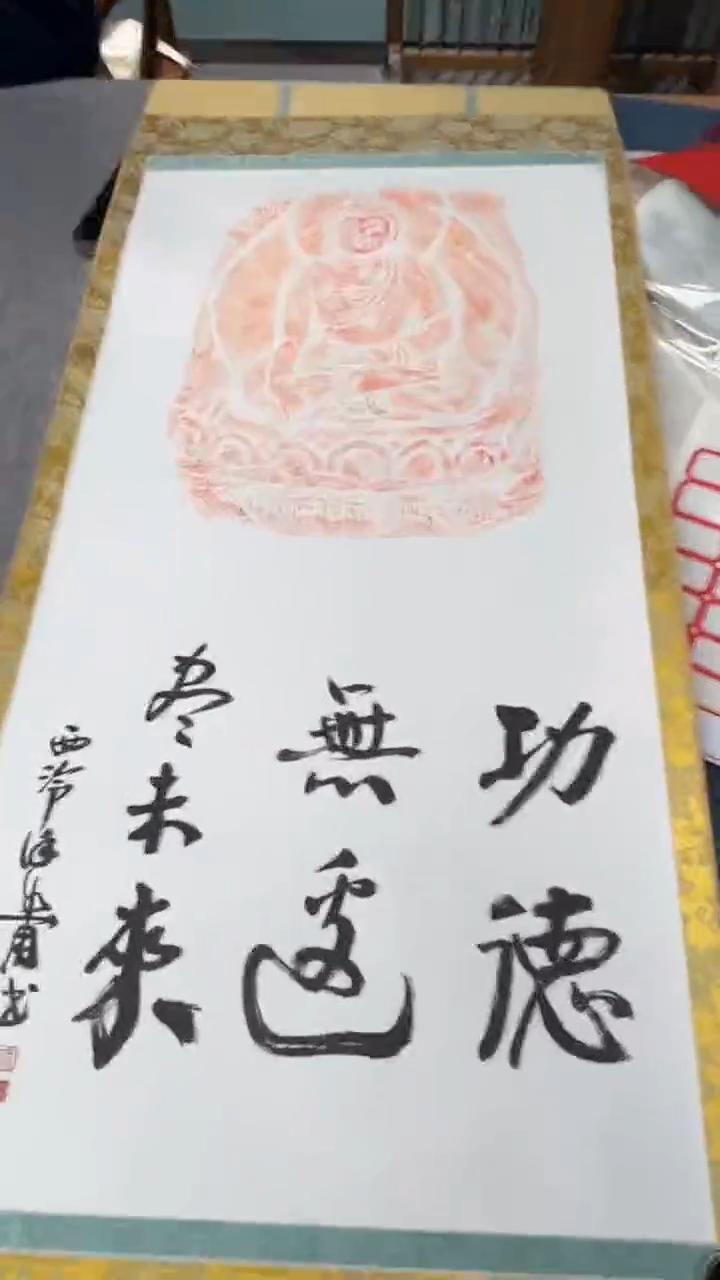 功德
無邊
尽未來
西泠
書